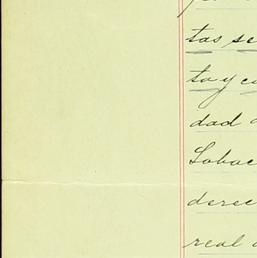 tas se
ta y c
dad
Sobac
derec
real